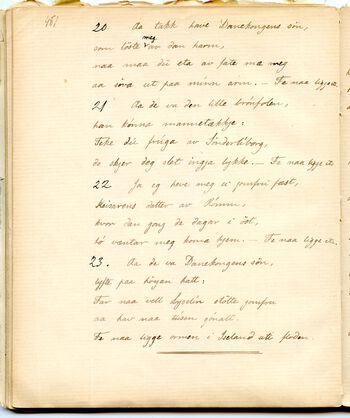 461
20. Aa takk have Danekongens sön,
som löste meg av dan harm,
naa maa du eta av fate ma meg
aa sova ut paa minn arm. — Fe naa ligge o.
21 Aa de va den litla brónfolen,
han kunna mannetækkje:
Teke du friga av Sönderliborg,
da skjer deg slet ingja lykke. — Fe naa ligge etc.
22 Ja eg heve meg ei jomfru fast,
keisarens datter av Rimm,
kvor dan gong de dagar i öst,
ho ventar meg koma hjem. — Fe naa ligge etc.
23. Aa de va Danekongens sön,
lyfte paa höyan hatt:
Far naa vell stötte jomfru
aa hav naa tusen gonatt.
Fe naa ligge ormen i Iseland uti floden.